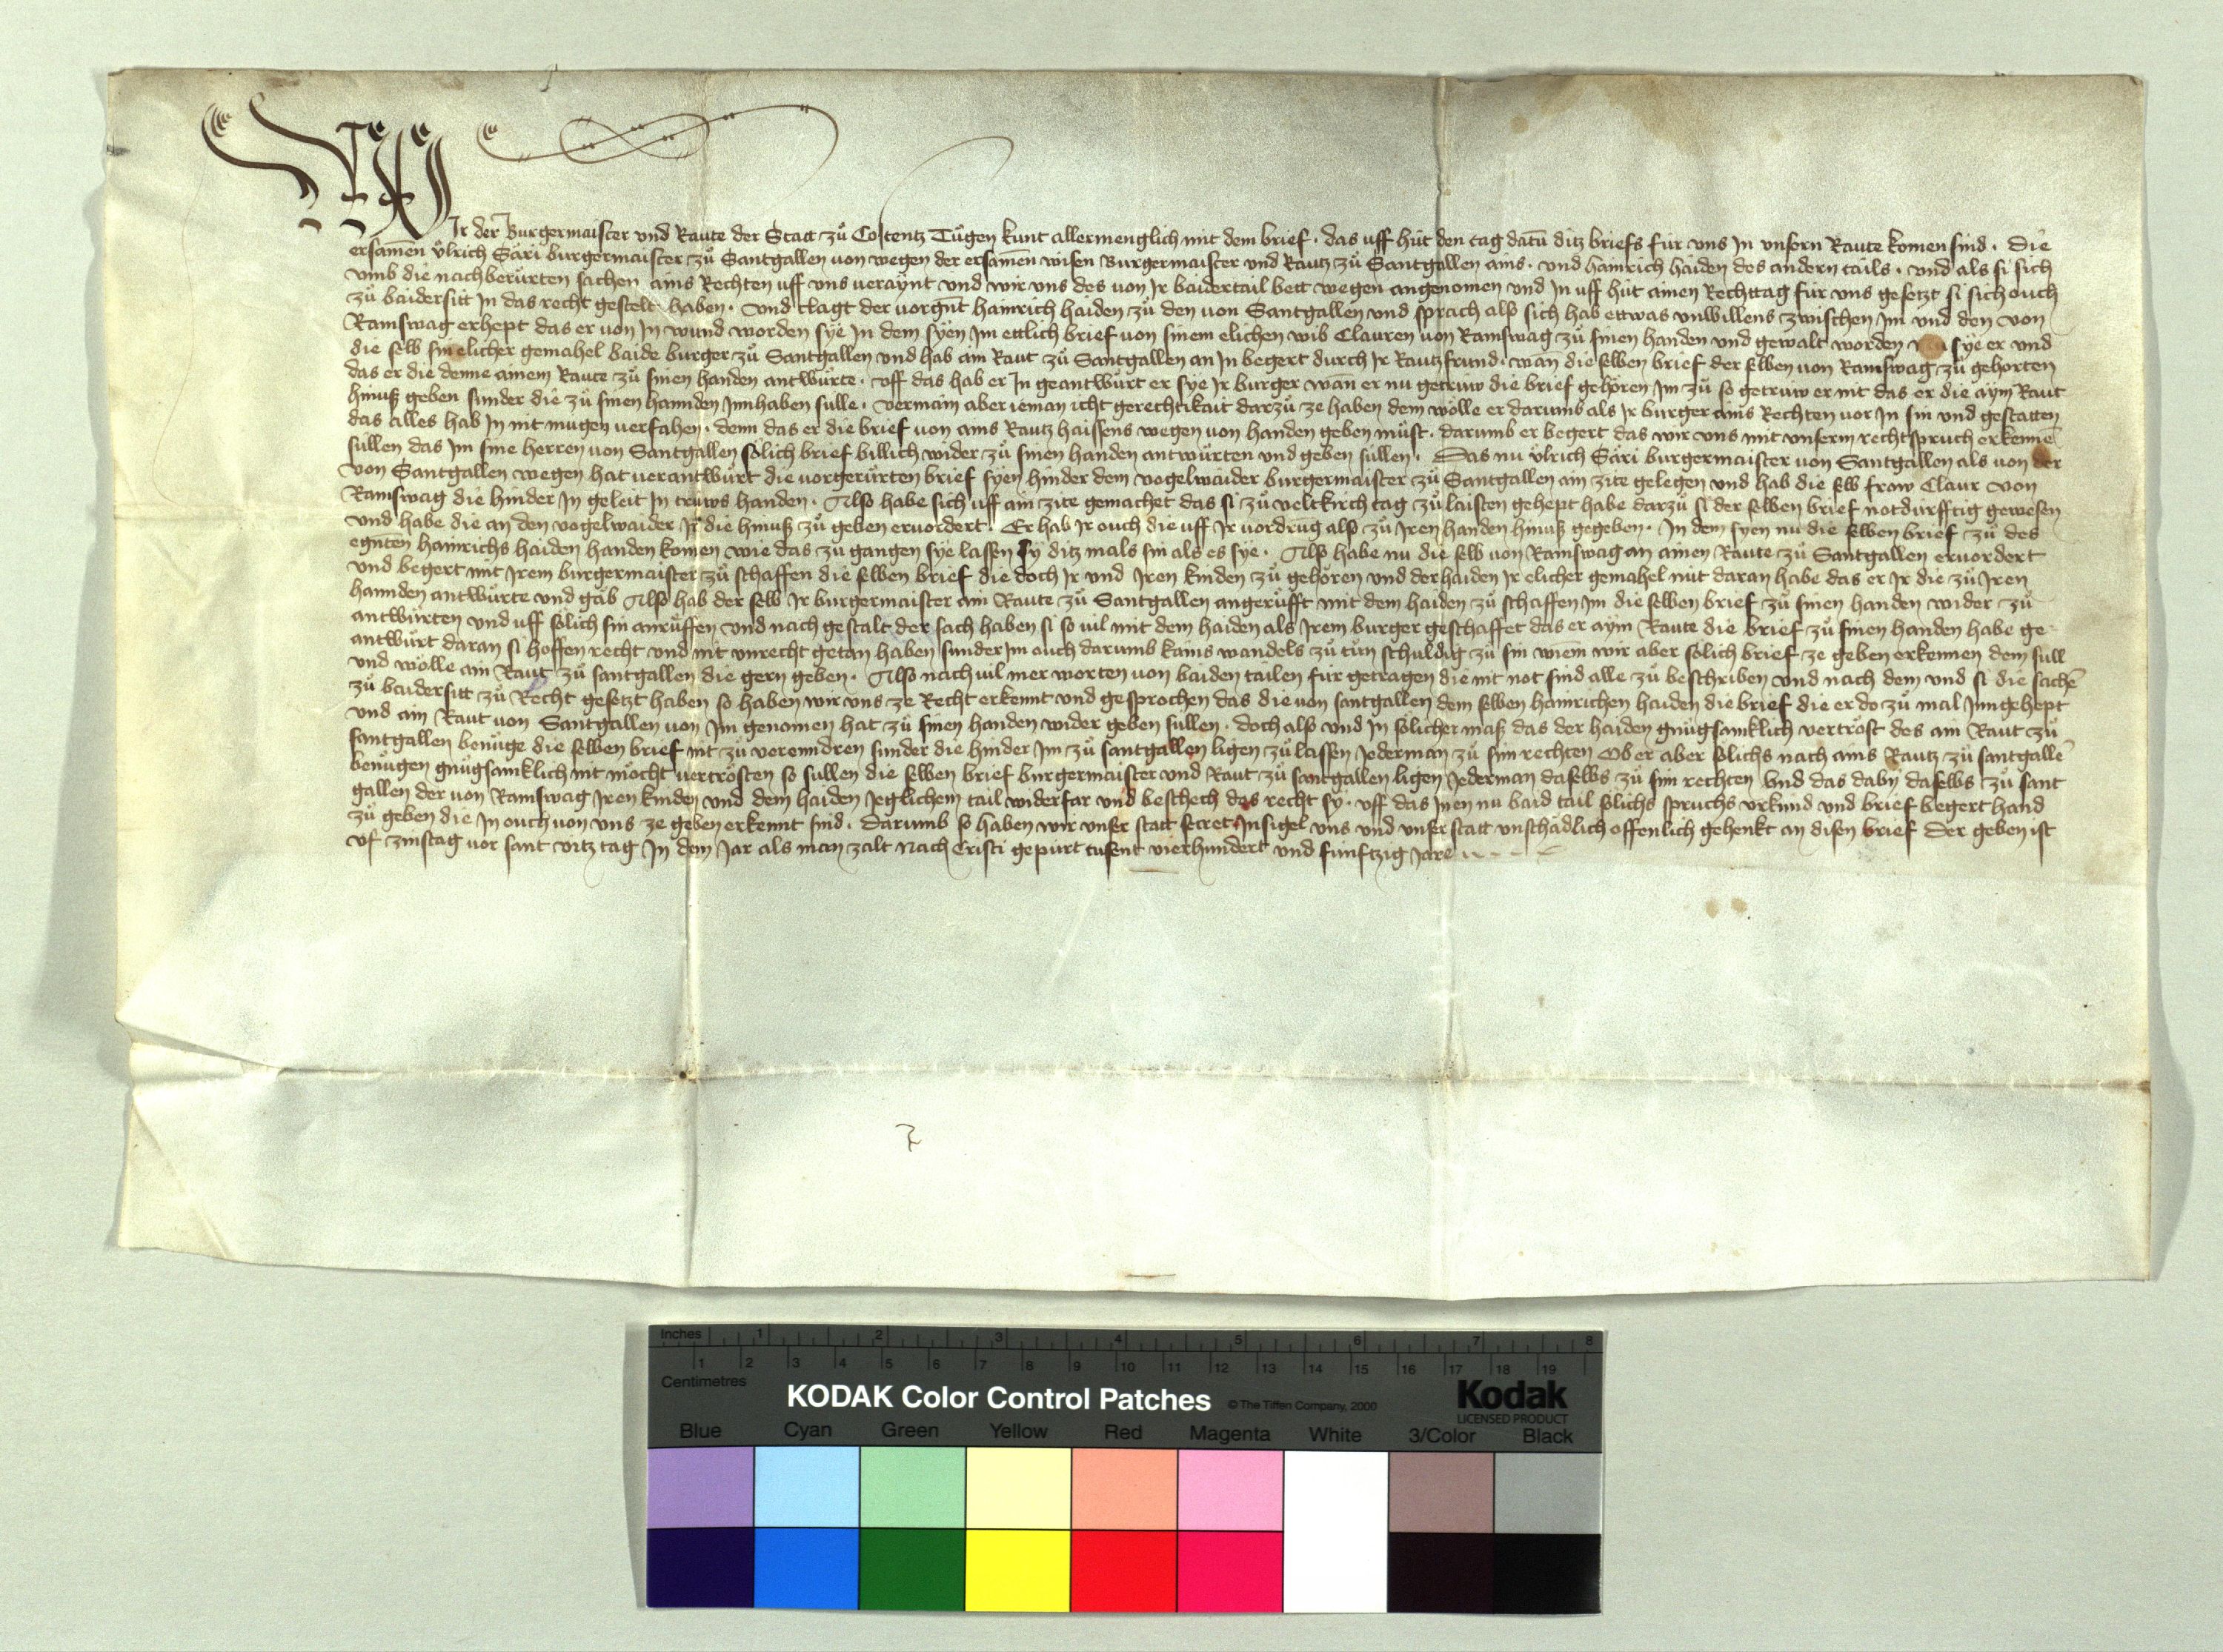 Wir der Burgermaister vnd Raute der Statt zů Costentz Tůgen kunt allermenglich mit dem brief · das vff hüt den tag datū ditz briefs für vns In vnsern Raute komen sind · Die
ersamen ůlrich Säri burgermaister zů Santgallen von wegen der ersamen wisen Burgermaister vnd Rautz zů Santgallen ains · vnd hainrich haiden des andern tails · vnd als si sich
vmb die nachberürten sachen ains Rechten vff vns veraynt vnd wir vns des von Ir baidertail bett wegen angenomen vnd In vff hüt ainen Rechttag für vns gesetzt si sich ouch
zů baidersitt In das recht gestelt haben · vnd clagt der vorgñt hainrich haiden zů den von Santgallen vnd sprach also sich hab ettwas vnwillens zwischen Im vnd den von
Ramswag erhept das er von In wund worden sye In dem syen Im ettlich brief von sinem elichen wib Clauren von Ramswag zů sinen handen vnd gewalt worden sye er vnd
die selb sin elicher gemahel baide burger zů Santgallen vnd hab ain Raut zů Santgallen an In begert durch Ir Rautzfrund · wan die selben brief der selben von Ramswag zů gehorten
das er die denne ainem Raute zů sinen handen antwürte · vff das hab er In geantwürt er sye Ir burger wan er nu getruw die brief gehören Im zů so getruw er nit das er die aym Raut
hinuß geben sunder die zů sinen hannden Innhaben sulle · vermain aber ieman icht gerechtikait darzů ze haben dem wölle er darumb als Ir burger ains Rechten vor In sin vnd gestatten
das alles hab In nit mugen verfahen · denn das er die brief von ains Rautz haissens wegen von handen geben můst · darumb er begert das wir vns mit vnserm rechtspruch erkennē
süllen das Im sine herren von Santgallen sölich brief billich wider zů sinen handen antwürten vnd geben süllen · Das nu ůlrich Säri burgermaister von Santgallen als von der
von Santgallen wegen hat verantwürt die vorgerürten brief syen hinder dem vogelwaider burgermaister zů Santgallen ain zite gelegen vnd hab die selb frow Claur von
Ramswag die hinder In geleit In truws handen · Also habe sich vff ain zite gemachet das si zů veltkirch tag zů laisten gehept habe darzů si der selben brief notdurfftig gewesen
vnd habe die an den vogelwaider Ir die hinuß zů geben ervordert · Er hab Ir ouch die vff Ir vordrug also zů Iren handen hinuß gegeben · In dem syen nu die selben brief zů des
egñten hainrichs haiden handen komen wie das zů gangen sye lassen sy ditz mals sin als es sye · Also habe nu die selb von Ramswag an ainen Raute zů Santgallen ervordert
vnd begert mit Irem burgermaister zů schaffen die selben brief die doch Ir vnd Iren kinden zů gehören vnd der haiden Ir elicher gemahel nüt daran habe das er Ir die zů Iren
hannden antwürte vnd gäb Also hab der selb Ir burgermaister ain Raute zů Santgallen angerůfft mit dem haiden zů schaffen Im die selben brief zů sinen handen wider zů
antwürten vnd vff sölich sin anrůffen vnd nach gestalt der sach haben si so vil mit dem haiden als Irem burger geschaffet das er aym Raute die brief zů sinen handen habe ge-
antwürt daran si hoffen recht vnd nit vnrecht getan haben sunder Im ouch darumb kains wandels zů tůn schuldig zů sin wiem wir aber sölich brief ze geben erkennen dem süll
vnd wölle ain Raut zů santgallen die gern geben · Also nach vil mer worten von baiden tailen für getragen die nit not sind alle zů beschriben vnd nach dem vnd si die sachē
zů baidersitt zů Recht gesetzt haben so haben wir vns ze Recht erkennt vnd gesprochen das die von santgallen dem selben hainrichen haiden die brief die er do zů mal Inngehept
vnd ain Raut von Santgallen von Im genomen hat zů sinen handen wider geben süllen · doch also vnd In sölicher maß das der haiden gnůgsamklich vertröst des ain Raut zů
santgallen benůge die selben brief nit zů verenndren sunder die hinder Im zů santgallen ligen zů lassen Jederman zů sim rechten Ob er aber sölichs nach ains Rautz zů santgallē
benůgen gnůgsamklich nit möcht vertrösten so süllen die selben brief burgermaister vnd Raut zů santgallen ligen Jederman daselbs zů sim rechten Vnd das daby daselbs zů sant
gallen der von Ramswag Iren kinden vnd dem haiden Jeglichem tail widerfar vnd beschech das recht sy · vff das Inen nu baid tail sölichs spruchs vrkund vnd brief begert hand
zů geben die In ouch von vns ze geben erkennt sind · Darumb so haben wir vnser statt secret Insigel vns vnd vnser statt vnschädlich offenlich gehenkt an disen brief Der geben ist
vf zinstag vor sant vitz tag In dem Jar als man zalt nach Cristi gepürt tusent vierhundert vnd fünftzig Jare
Inches 1 2 3 4 5 6 7 8
1 2 3 4 5 6 7 8 9 10 11 12 13 14 15 16 17 18 19
Centimetres
KODAK Color Control Patches © The Tiffen Company, 2000 Kodak
LICENSED PRODUCT
Blue Cyan Green Yellow Red Magenta White 3/Color Black